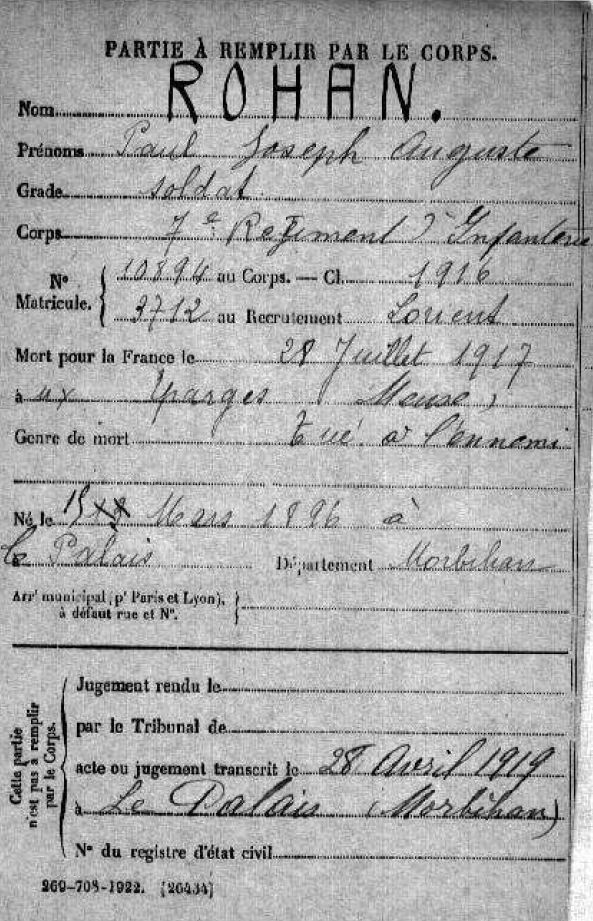 PARTIE À REMPLIR PAR LE CORPS.
Nom ROHAN.
Prénoms Paul Joseph Auguste
Grade soldat
Corps 7e Regiment d'Infanterie
No Matricule. 10894 au Corps. — Cl. 1916
3712 au Recrutement Lorient
Mort pour la France le 28 Juillet 1917
à ux Eparges Meuse)
Genre de mort Tué à l'ennemi
Né le 15 Mars 1896 à
le Palais Département Morbihan
Arrt municipal (pr Paris et Lyon),
à défaut rue et No.
Cette partie n'est pas à remplir par le Corps.
Jugement rendu le
par le Tribunal de
acte ou jugement transcrit le 28 Avril 1919
à Le Palais (Morbihan)
No du registre d'état civil
269-708-1922. [26434]